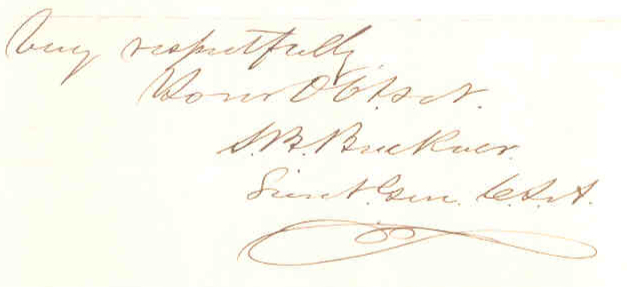 Very respectfully
Your Obt. Svt.
S. B. Buckner
Lieut. Gen. C.S.A.